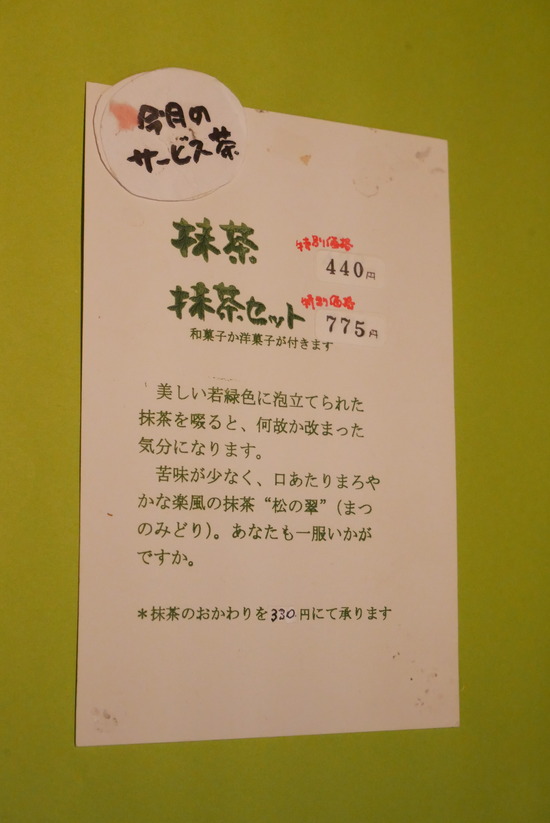 今月の
サービス茶
抹茶 特別価格
440円
抹茶セット 特別価格
775円
和菓子か洋菓子が付きます
美しい若緑色に泡立てられた
抹茶を啜ると、何故か改まった
気分になります。
苦味が少なく、口あたりまろや
かな楽風の抹茶“松の翠”(まつ
のみどり)。あなたも一服いかが
ですか。
＊抹茶のおかわりを330円にて承ります